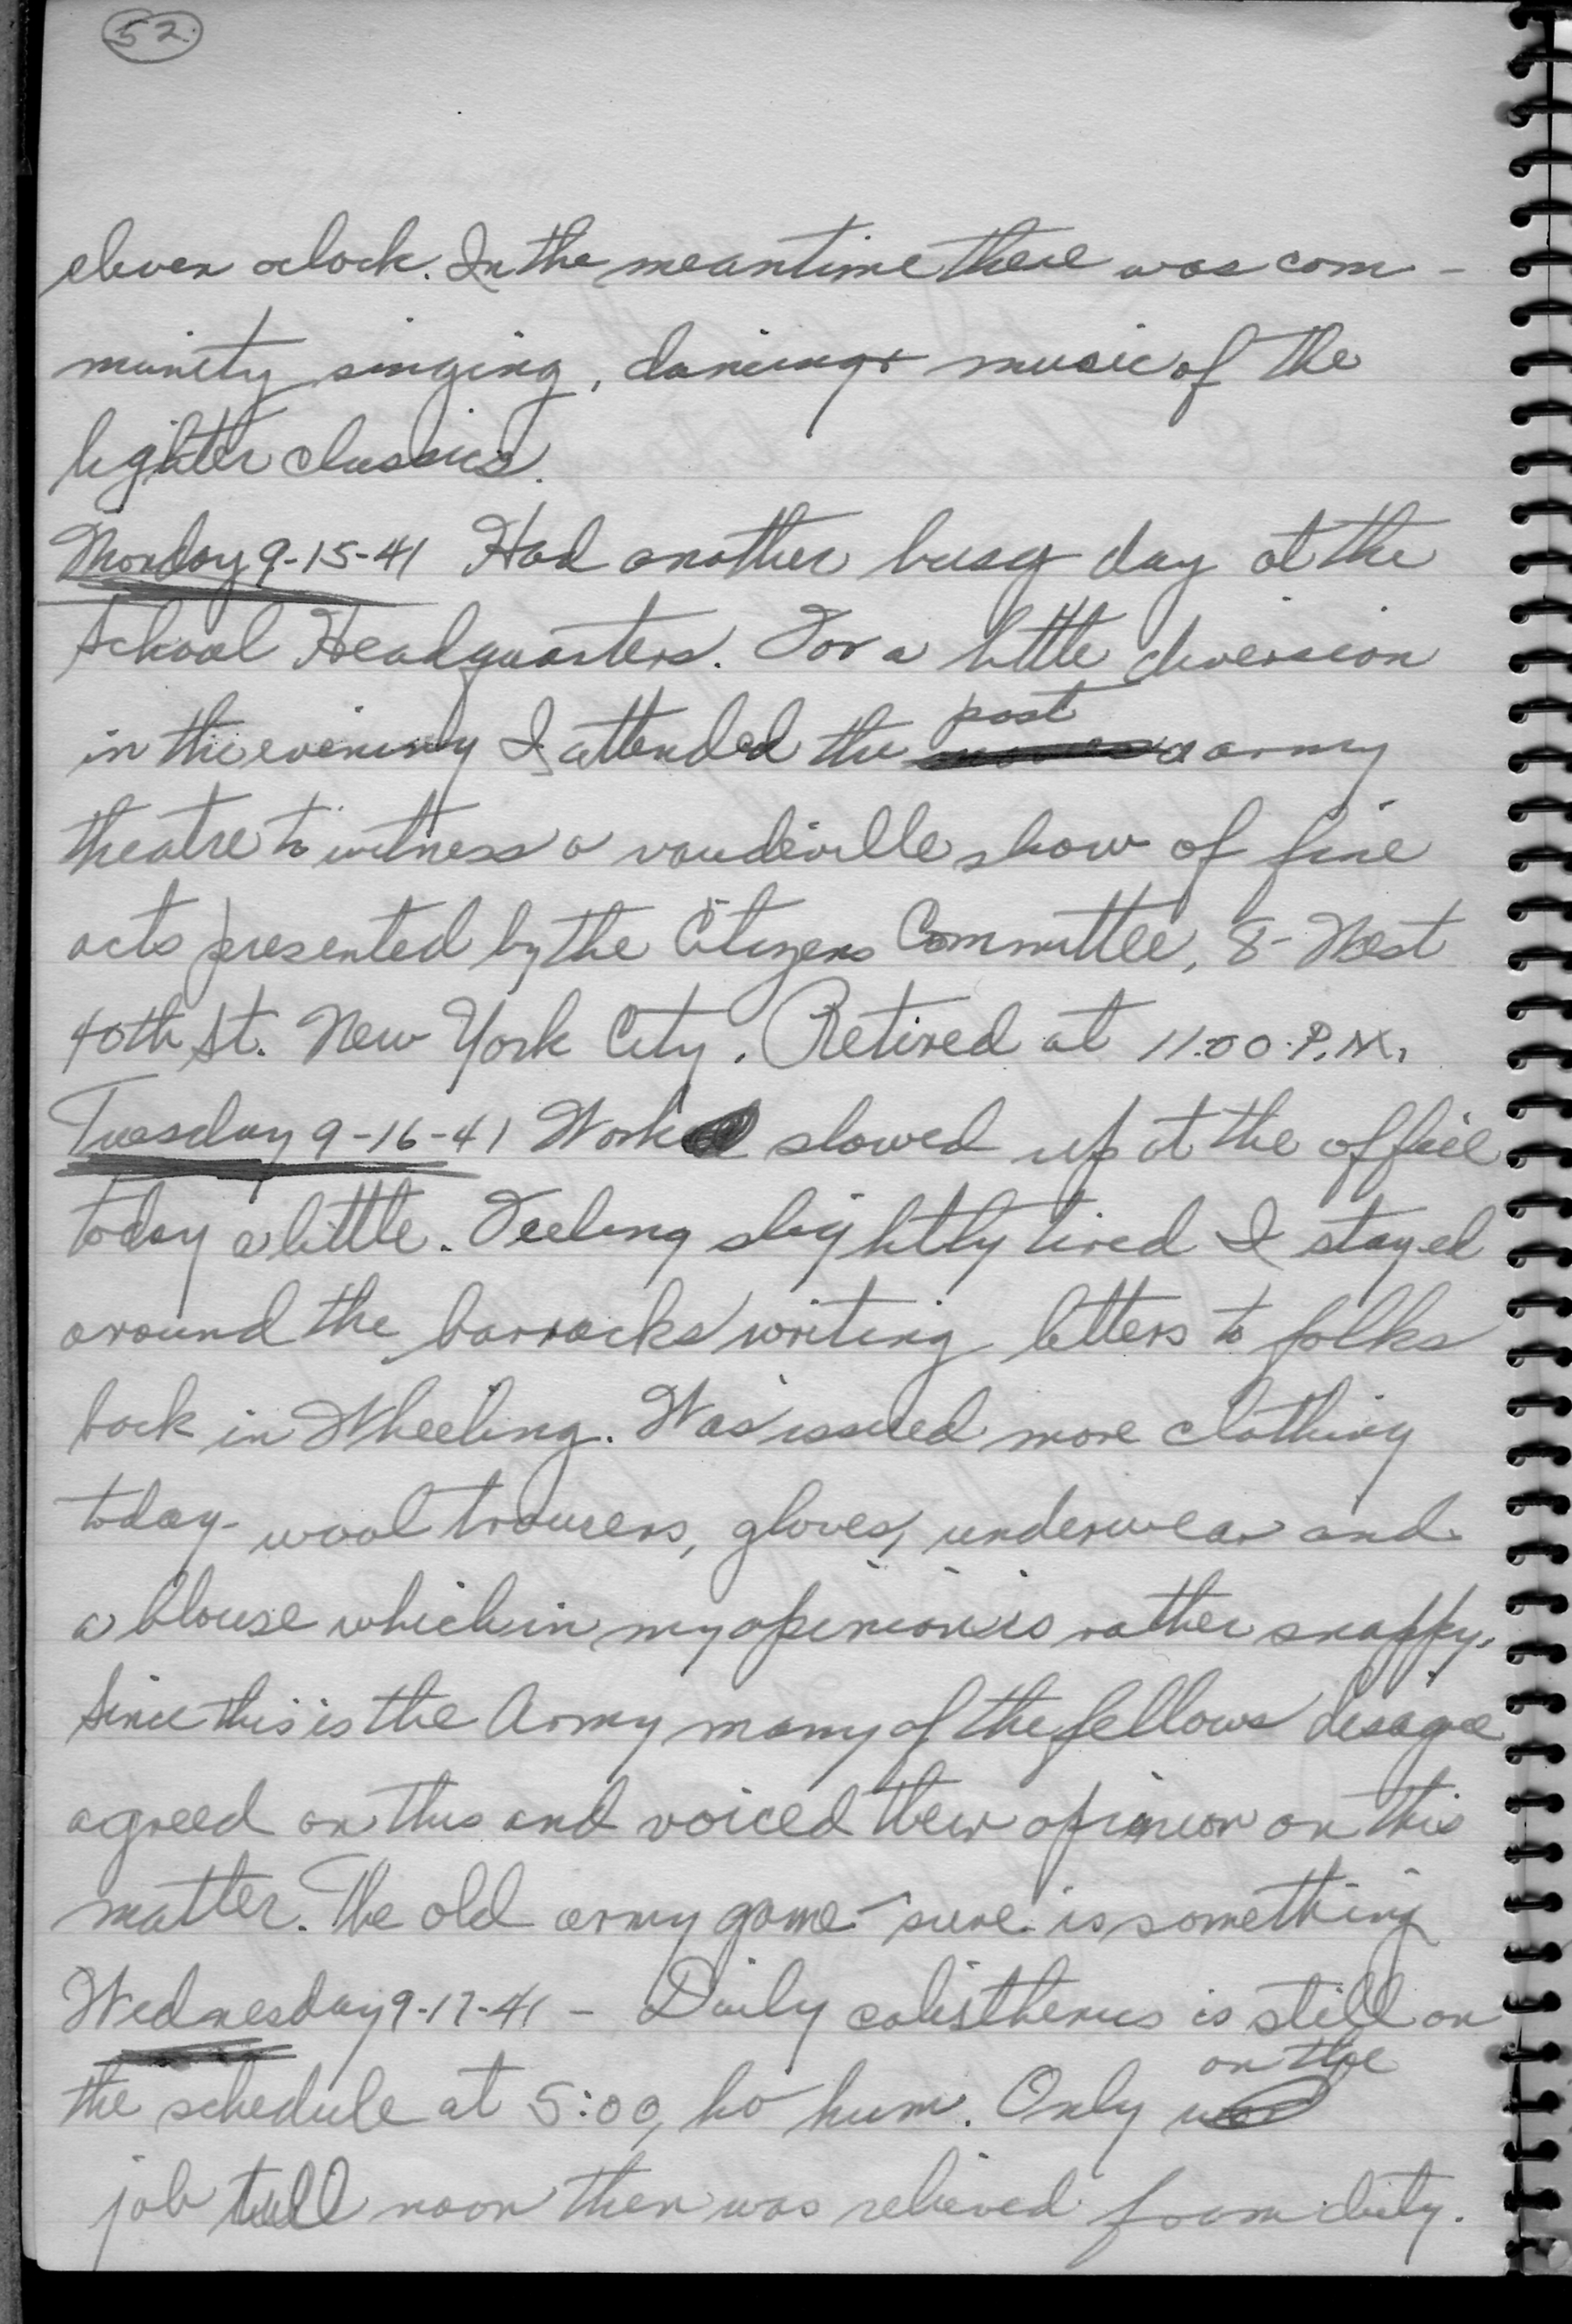 52.
eleven oclock. In the meantime there was com-
munity singing, dancing & music of the
lighter classics.
Monday 9-15-41 Had another busy day at the
School Headquarters. For a little diversion
in the evening I attended the post army
theatre to witness a vaudeville show of five
acts presented by the Citizens Committee, 8-West
40th St. New York City. Retired at 11:00 P.M.
Tuesday 9-16-41 Work slowed up at the office
today a little. Feeling slightly tired I stayed
around the barracks writing letters to folks
back in Wheeling. Was issued more clothing
today - wool trousers, gloves, underwear and
a blouse which in my opinion is rather snappy.
Since this is the Army many of the fellows disagree
agreed on this and voiced their opinion on this
matter. The old army game - sure is something
Wednesday 9-17-41 - Daily calisthenics is still on
the schedule at 5:00, ho hum. Only on the
job till noon then was relieved from duty.